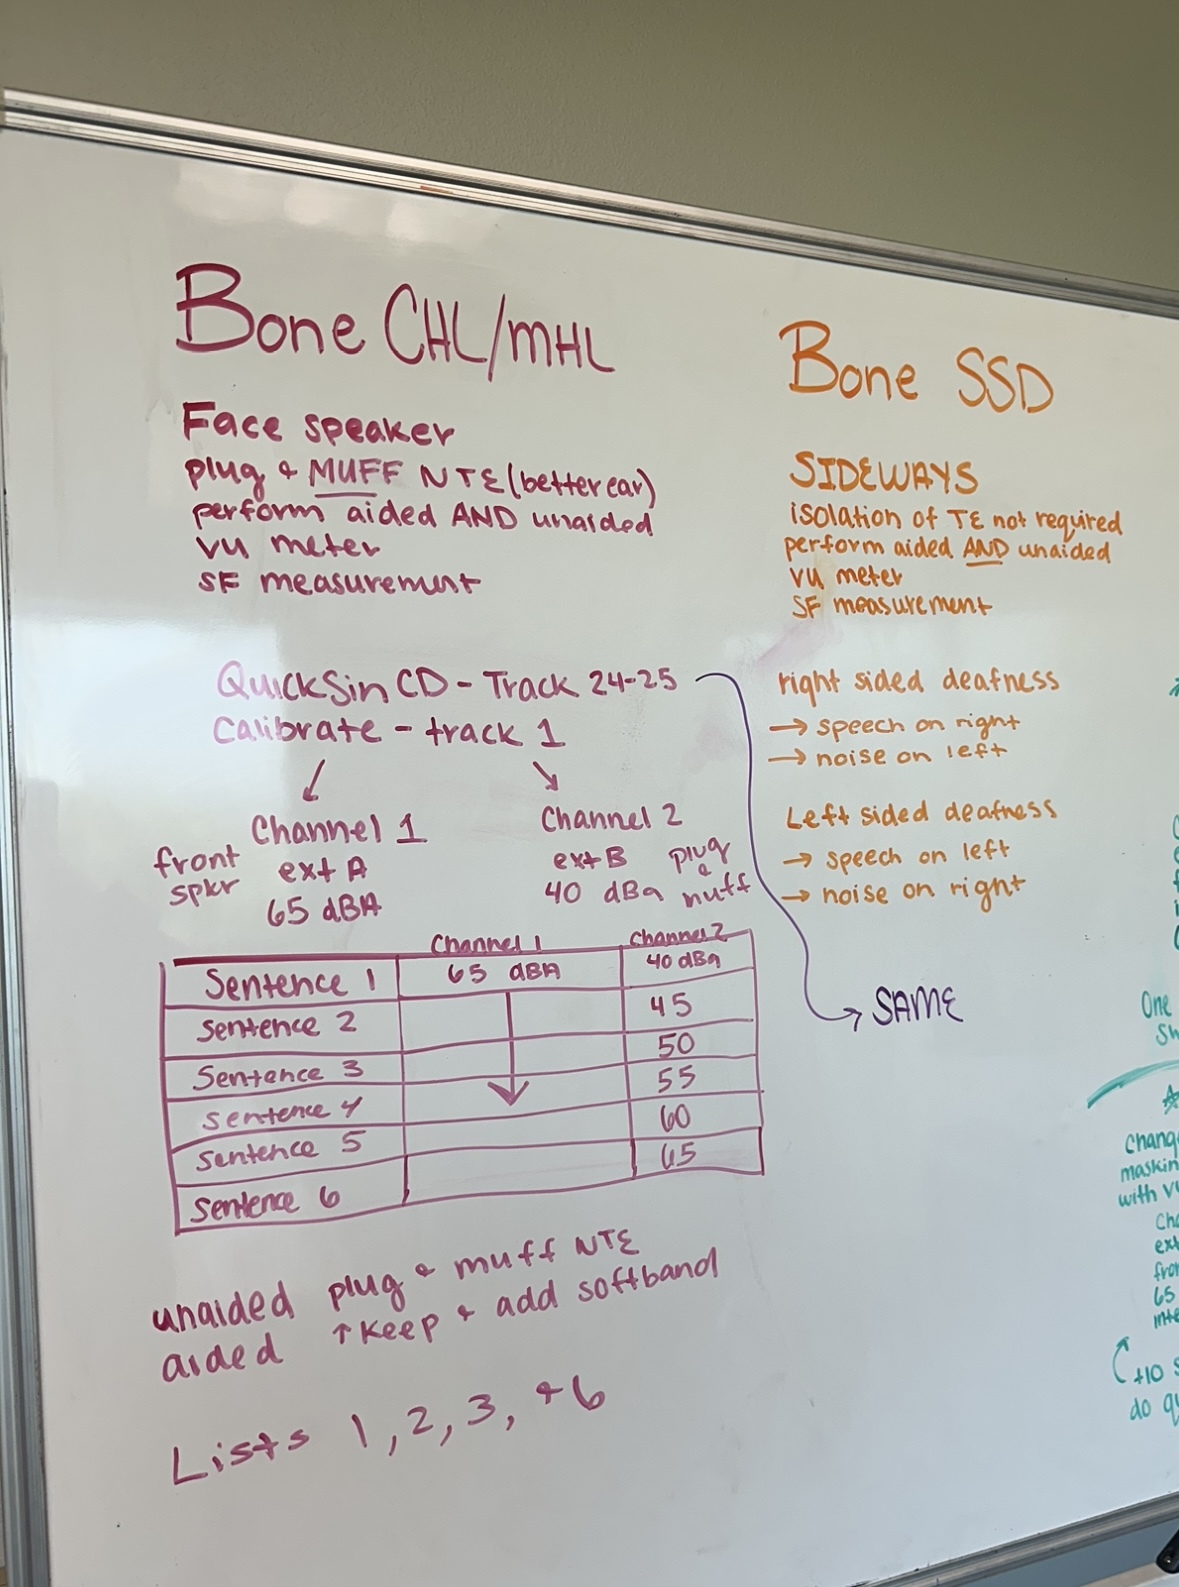 Bone CHL/MHL
Face speaker
plug & MUFF NTE (better ear)
perform aided AND unaided
VU meter
SF measurement
QuickSin CD - Track 24-25
Calibrate - track 1
Channel 1
front spkr
ext A
65 dBA
Channel 2
ext B
40 dBA
plug & muff
Channel 1 Channel 2
Sentence 1 65 dBA 40 dBA
Sentence 2 45
Sentence 3 50
Sentence 4 55
Sentence 5 60
Sentence 6 65
unaided plug & muff NTE
aided ↑ keep & add softband
Lists 1, 2, 3, & 6
Bone SSD
SIDEWAYS
isolation of TE not required
perform aided AND unaided
VU meter
SF measurement
right sided deafness
→ speech on right
→ noise on left
Left sided deafness
→ speech on left
→ noise on right
→ SAME
One
with
65
+10
do